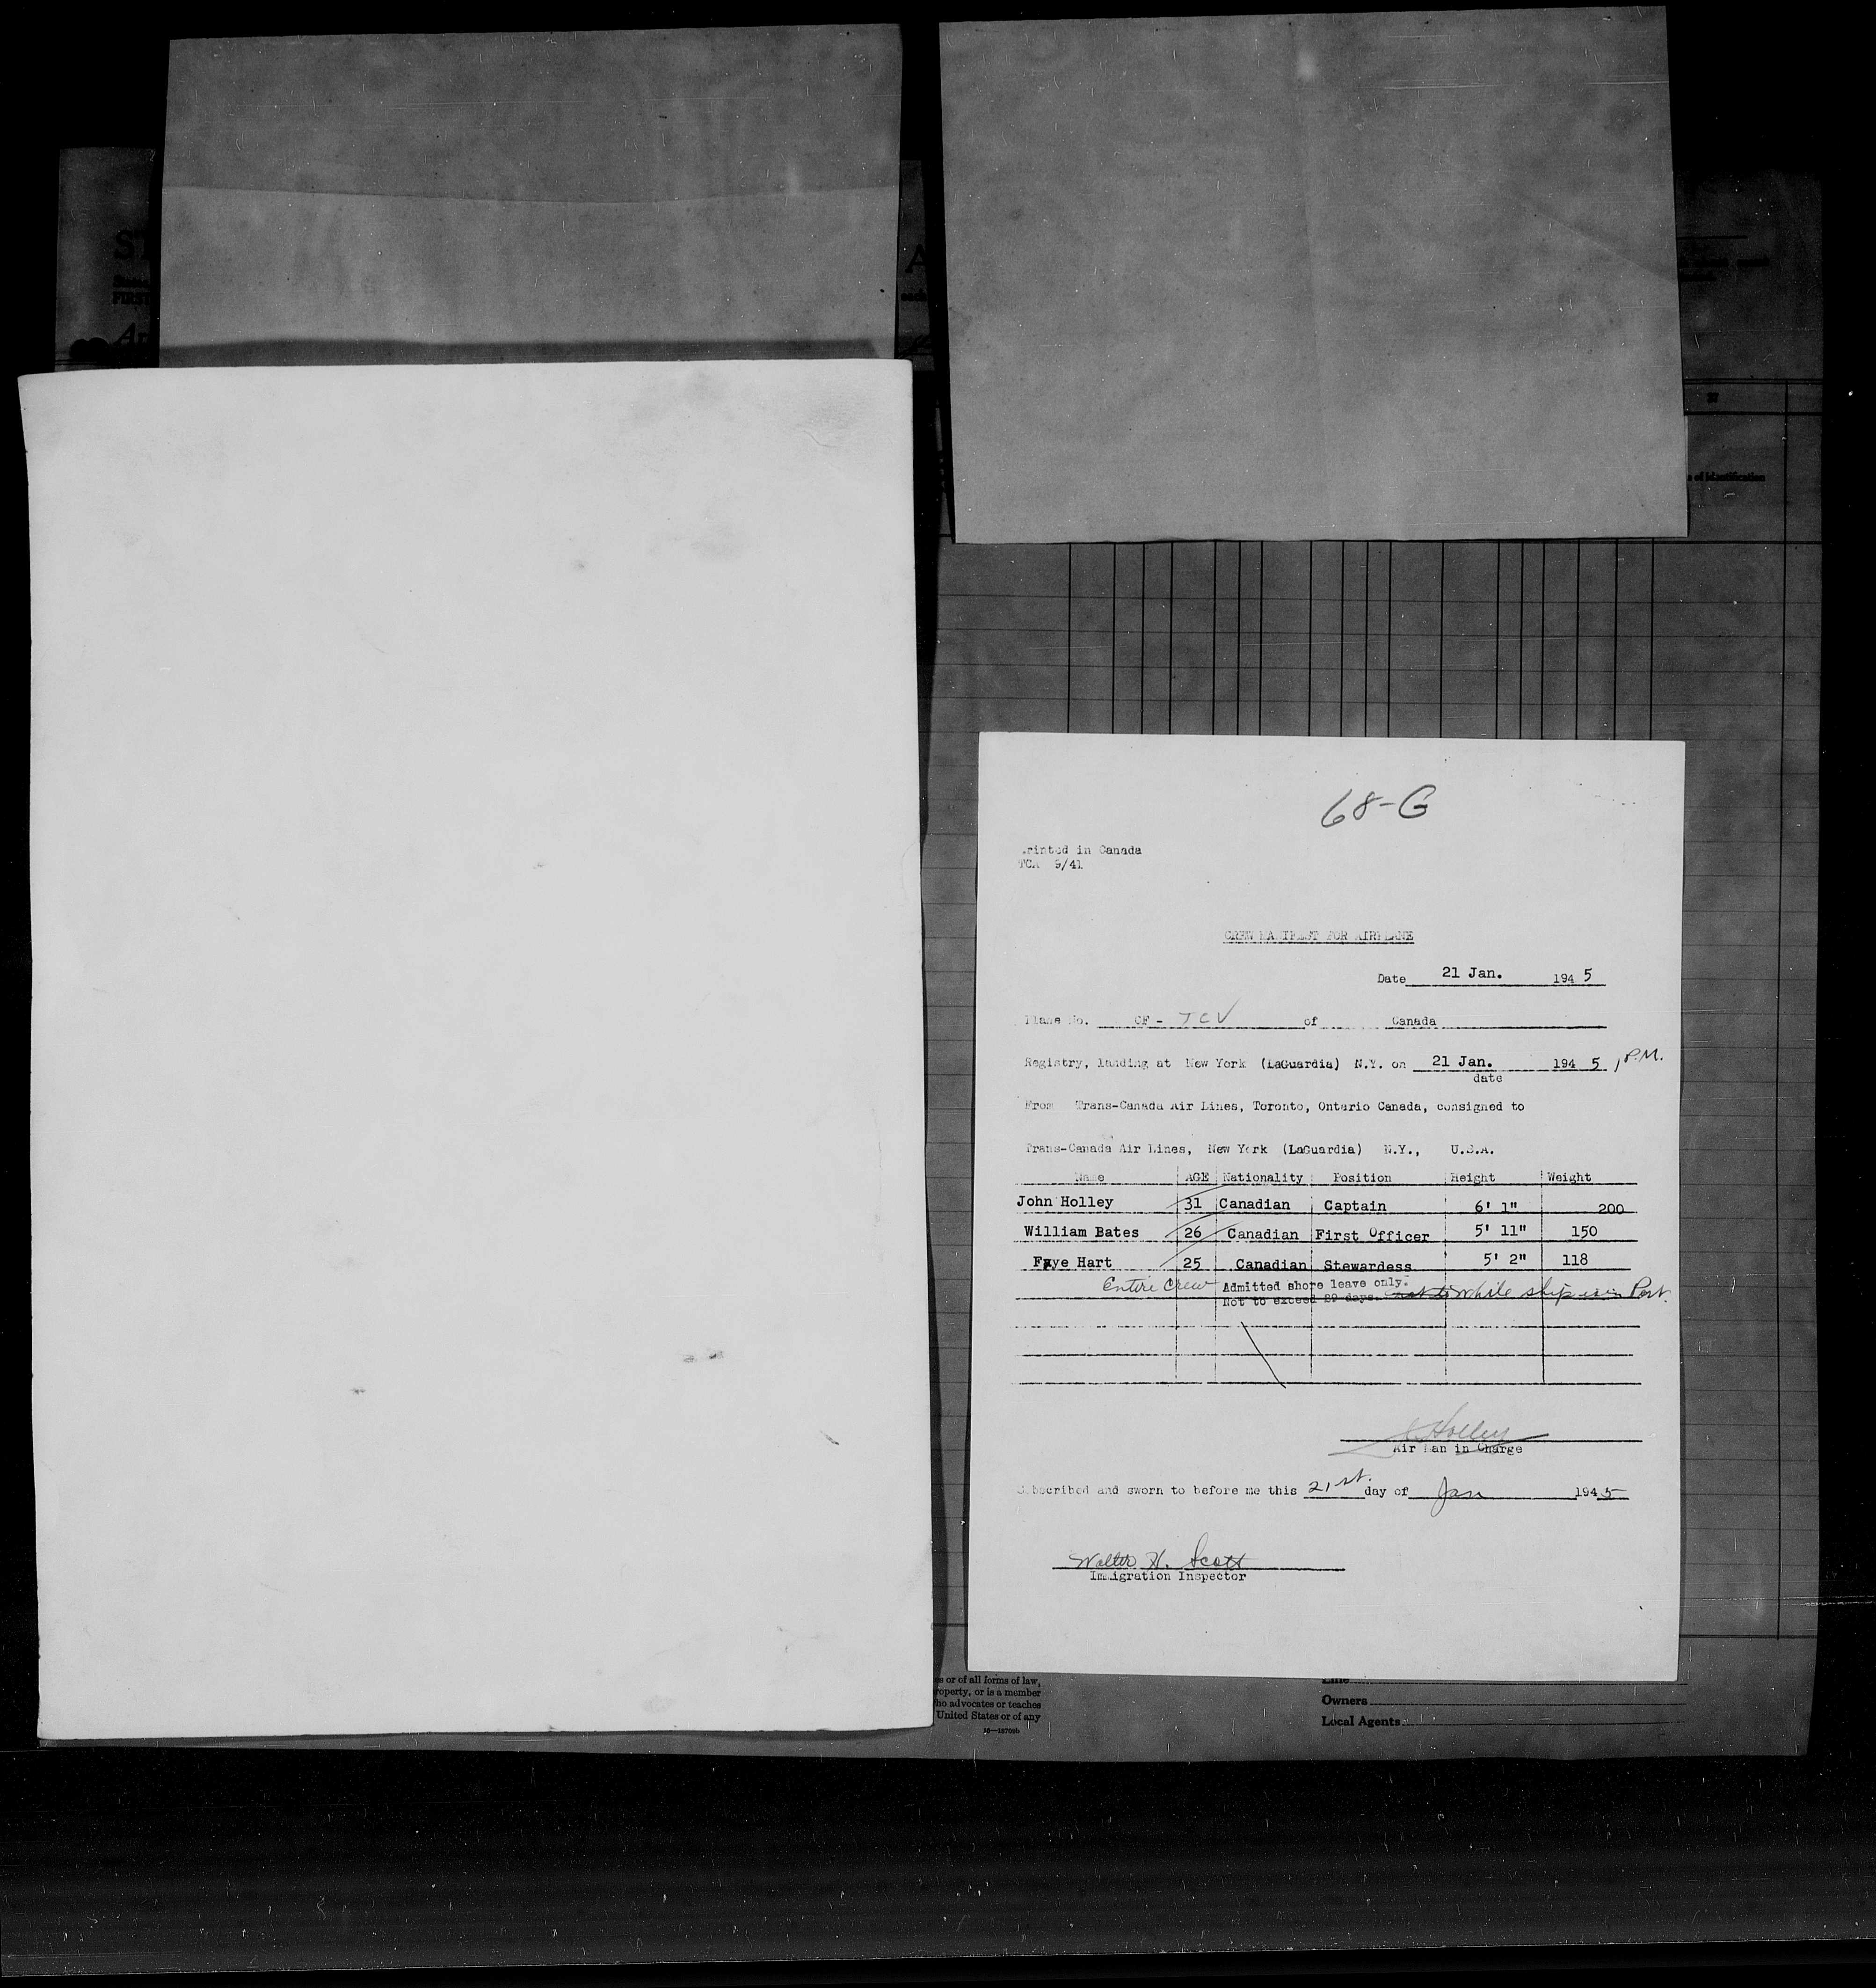 68-G
Printed in Canada
TCA 9/41
CREW MANIFEST FOR AIRPLANE
Date 21 Jan. 1945
Plane No. CF - TCV of Canada
Registry, landing at New York (LaGuardia) N.Y. on 21 Jan. 1945, P.M.
date
From Trans-Canada Air Lines, Toronto, Ontario Canada, consigned to
Trans-Canada Air Lines, New York (LaGuardia) N.Y., U.S.A.
Name AGE Nationality Position Height Weight
John Holley 31 Canadian Captain 6' 1" 200
William Bates 26 Canadian First Officer 5' 11" 150
Faye Hart 25 Canadian Stewardess 5' 2" 118
Entire Crew Admitted shore leave only.
Not to exceed 29 days. while ship is in Port.
Holley
Air Man in Charge
Subscribed and sworn to before me this 21st. day of Jan 1945
Walter H. Scott
Immigration Inspector
37
of identification
FIRST
es or of all forms of law,
roperty, or is a member
ho advocates or teaches
United States or of any
Line
Owners
Local Agents